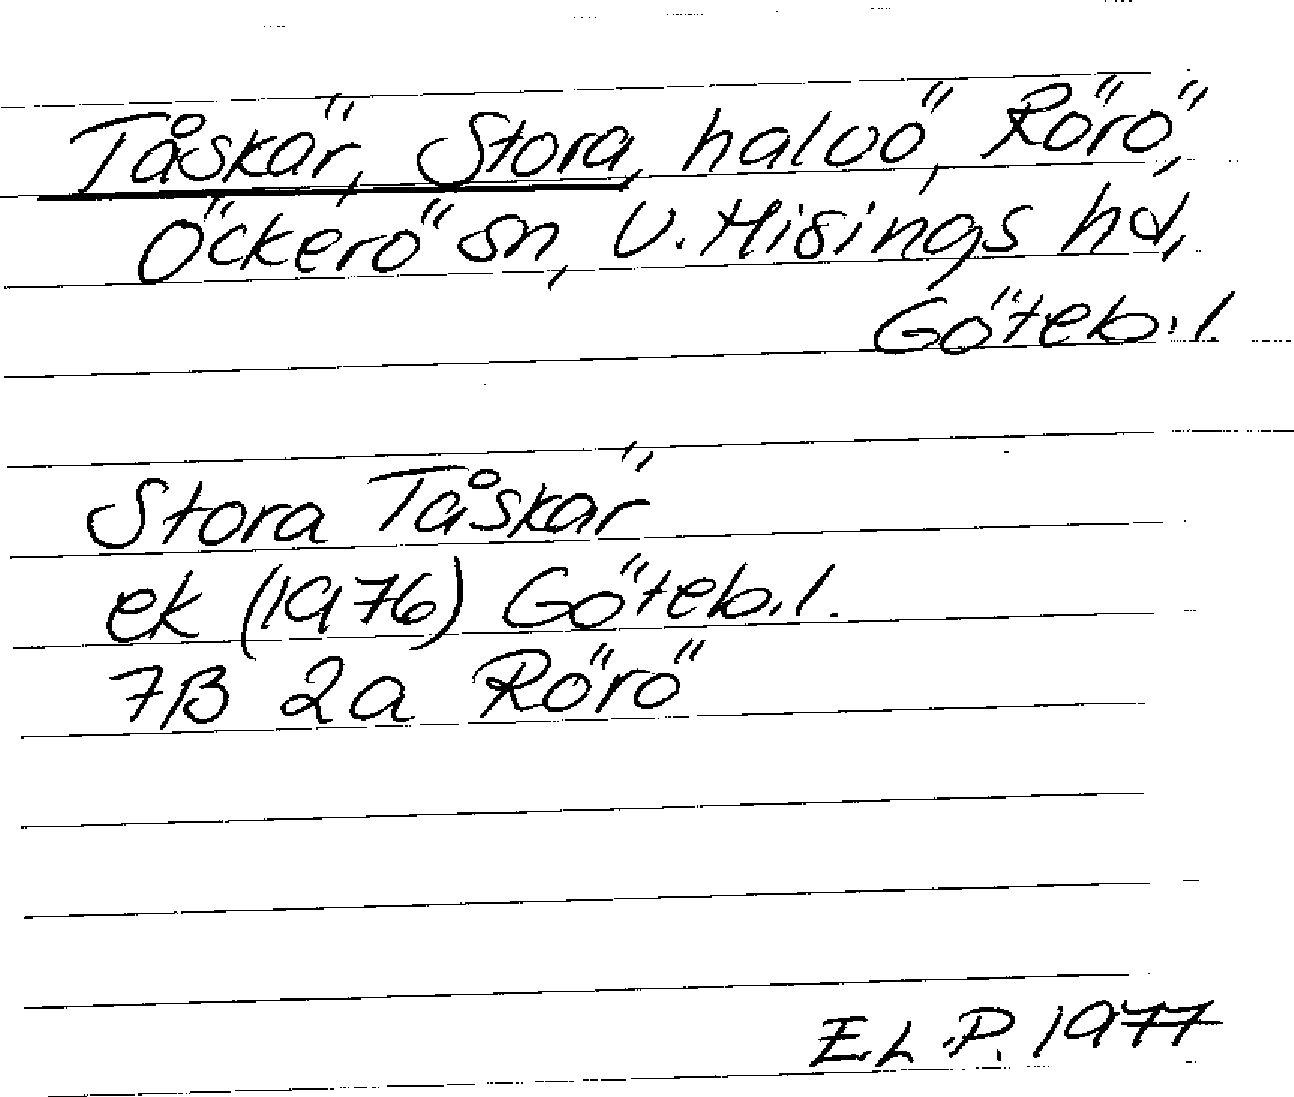 Tåskär, Stora, halvö, Rörö,
Öckerö sn, V. Hisings hd,
Göteb.l.
Stora Tåskär
ek (1976) Göteb.l.
7B 2a Rörö
E.L.P. 1977